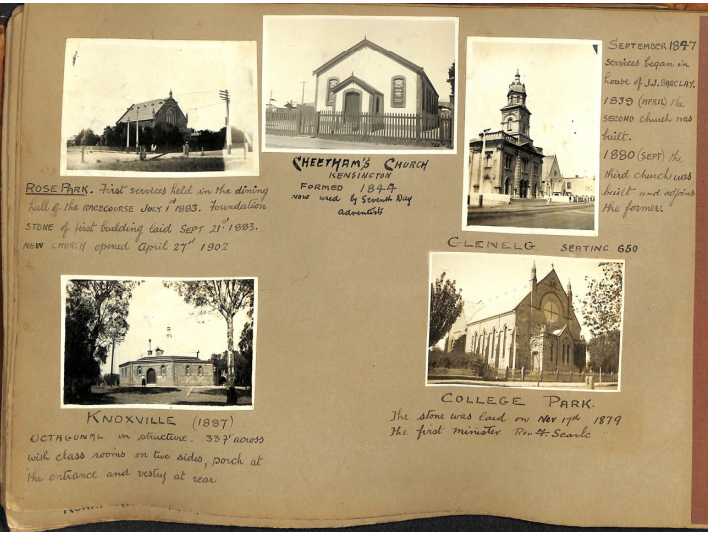 ROSE PARK. First services held in the dining
hall of the RACECOURSE JULY 1st 1883. Foundation
STONE of first building laid SEPT 21st 1883.
NEW CHURCH opened April 27th 1902
CHEETHAM'S CHURCH
KENSINGTON
FORMED 1844
NOW used by Seventh Day
adventists
SEPTEMBER 1847
services began in
house of J.J. BARCLAY.
1859 (APRIL) the
SECOND church was
built.
1880 (SEPT) the
third church was
built and adjoins
the former.
GLENELG SEATING 650
KNOXVILLE (1887)
OCTAGUNAL in structure. 33 ft across
with class rooms on two sides, porch at
the entrance and vestry at rear
COLLEGE PARK.
The stone was laid on Nov 17th 1879
The first minister Rev.